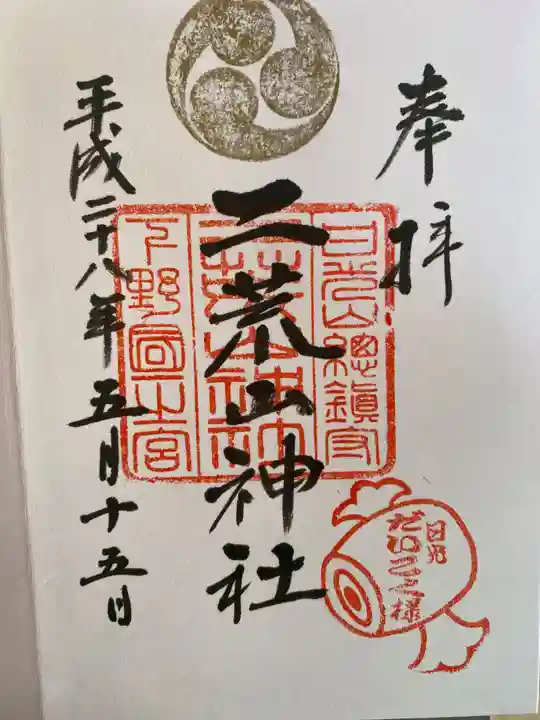 奉拝
日光山總鎮守
二荒山神社
二荒山神社
下野國一宮
平成二十八年五月十五日
日光
だいこく様